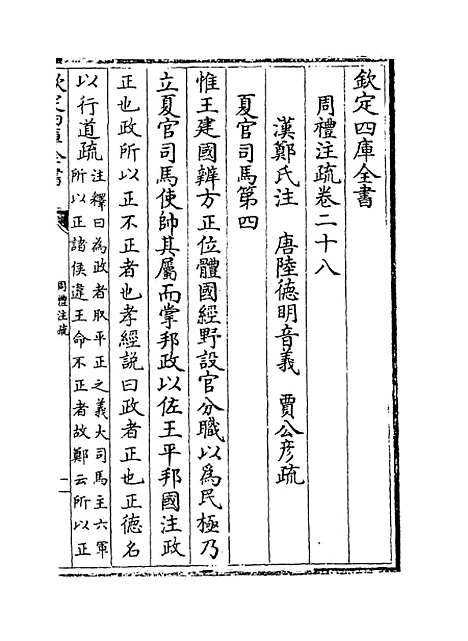 欽定四庫全書
周禮注疏卷二十八
漢鄭氏注 唐陸德明音義 賈公彦疏
夏官司馬第四
惟王建國辨方正位體國經野設官分職以為民極乃
立夏官司馬使帥其屬而掌邦政以佐王平邦國注政
正也政所以正不正者也孝經說曰政者正也正德名
以行道疏
注釋曰為政者取平正之義大司馬主六軍
所以正諸侯違王命不正者故鄭云所以正
欽定四庫全書
周禮注疏
一